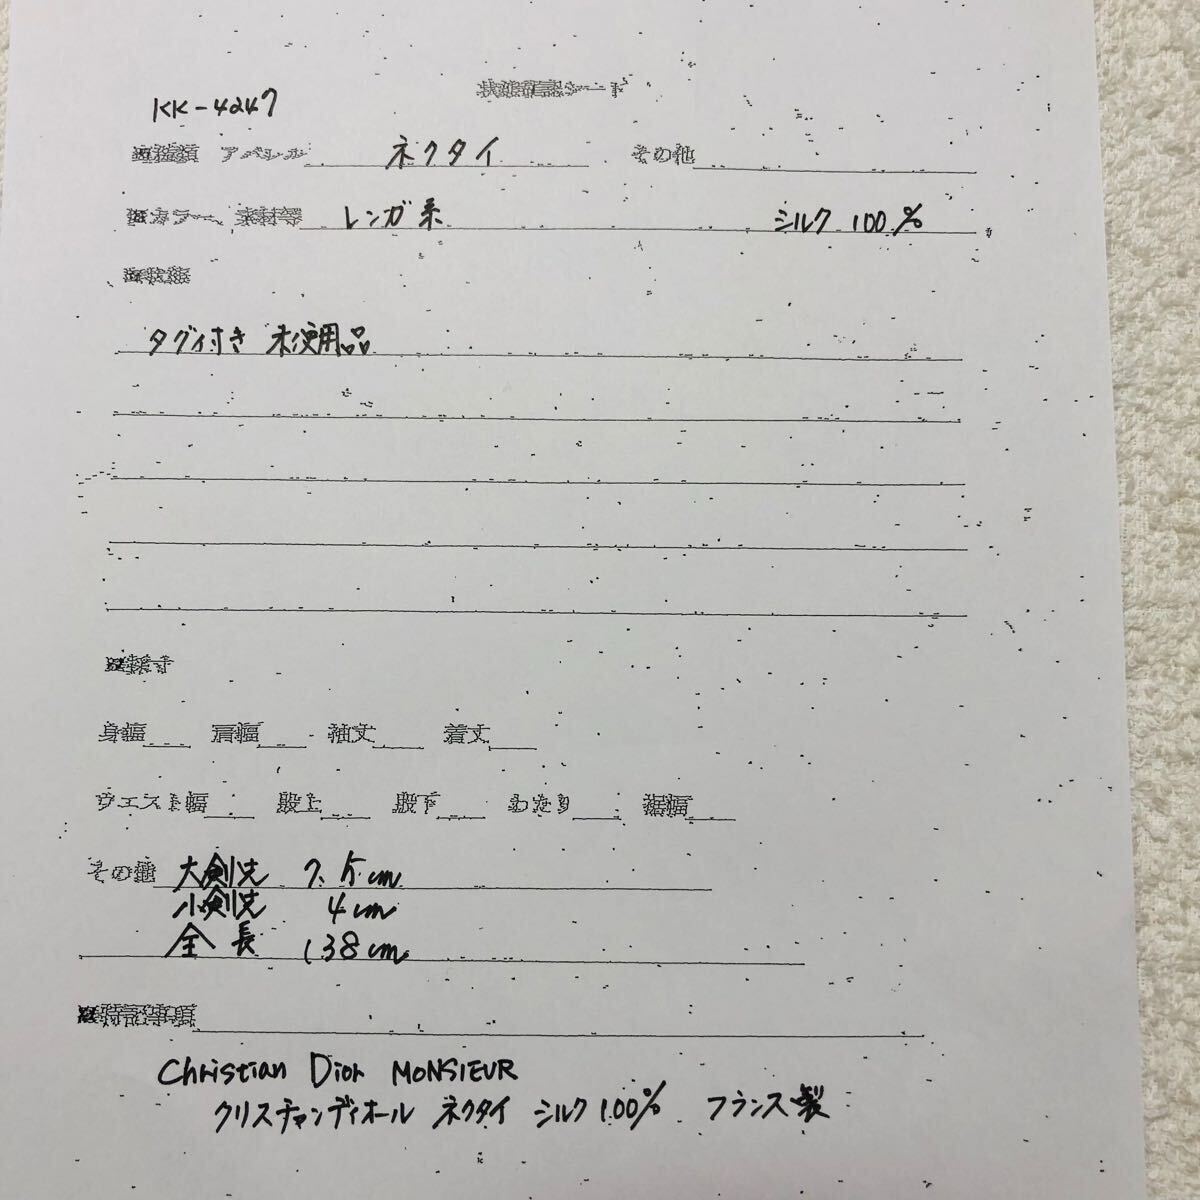 状態確認シート
KK-4247
※種類 アパレル ネクタイ その他
※カラー、素材等 レンガ系 シルク 100%
※状態
タグ付き 未使用品
※採寸
身幅 肩幅 袖丈 着丈
ウエスト幅 股上 股下 わたり 裾幅
その他 大剣先 7.5cm
小剣先 4cm
全長 138cm
※特記事項
Christian Dior MONSIEUR
クリスチャンディオール ネクタイ シルク100% フランス製